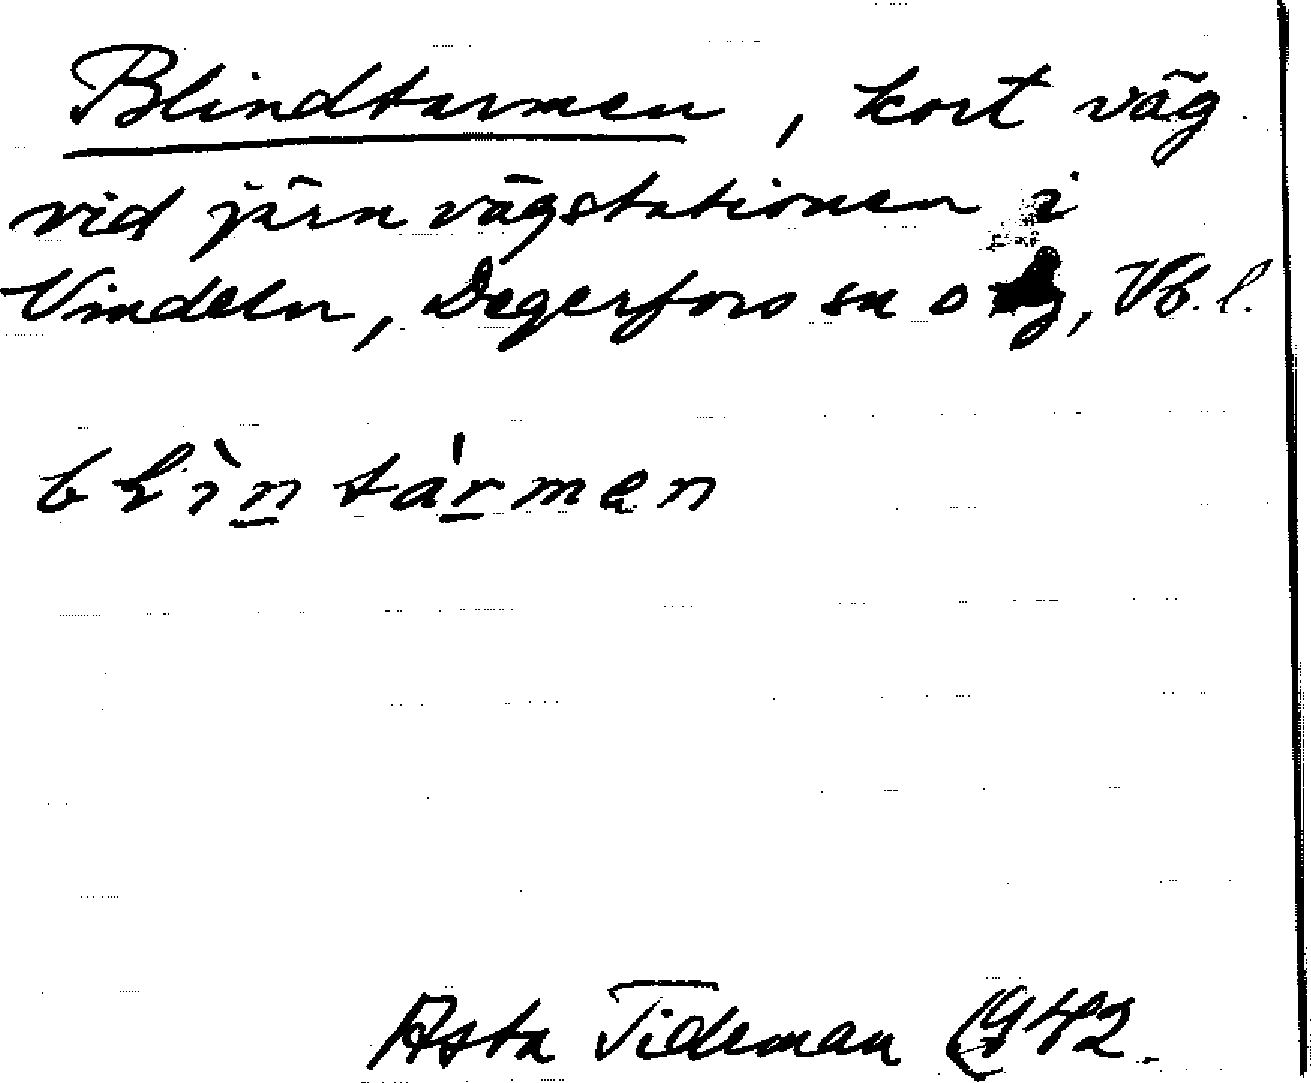 Blindtarmen, kort väg
vid järnvägstationen i
Vindeln, Degerfors sn o, Vb. l.
tarmen
Asta Tideman 1942.